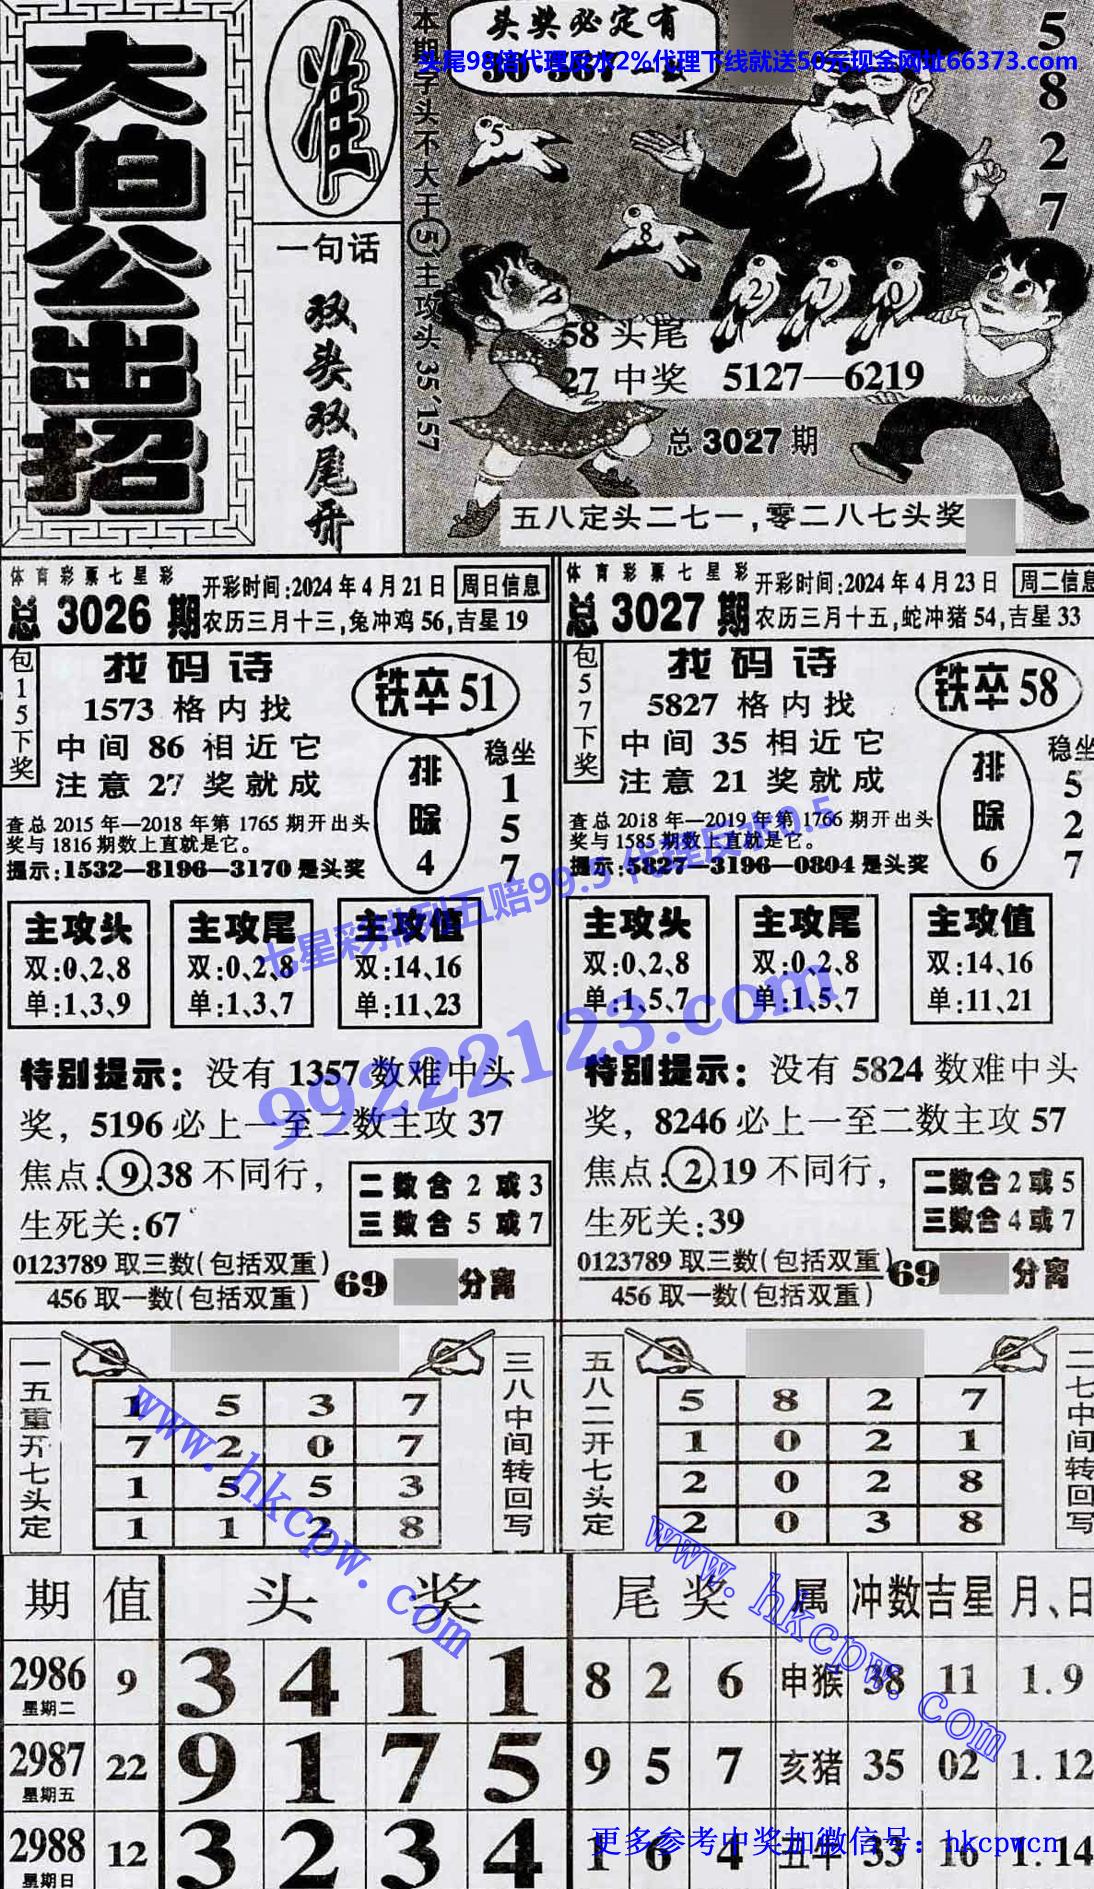 大伯公出招
准
一句话
双头双尾开
本期字头不大于5,主攻头35、157
头奖必定有
头尾98倍代理反水2%代理下线就送50元现金网址66373.com
5827
5
8
2 7 0
58 头尾
27 中奖 5127—6219
总 3027 期
五八定头二七一,零二八七头奖
体育彩票七星彩
总 3026 期
开彩时间:2024年4月21日 周日信息
农历三月十三,兔冲鸡56,吉星19
包15下奖
找码诗
1573 格内找
中间 86 相近它
注意 27 奖就成
铁卒51
排除4
稳坐157
查总2015年—2018年第1765期开出头
奖与1816期数上直就是它。
提示:1532—8196—3170是头奖
主攻头
双:0、2、8
单:1、3、9
主攻尾
双:0、2、8
单:1、3、7
主攻值
双:14、16
单:11、23
特别提示:没有1357数难中头
奖,5196必上一至二数主攻37
焦点:9、38不同行,
生死关:67
二数合2或3
三数合5或7
0123789取三数(包括双重)
456取一数(包括双重)
69 分离
一五重开七头定
1 5 3 7
7 2 0 7
1 5 5 3
1 1 2 8
三八中间转回写
体育彩票七星彩
总 3027 期
开彩时间:2024年4月23日 周二信息
农历三月十五,蛇冲猪54,吉星33
包57下奖
找码诗
5827 格内找
中间 35 相近它
注意 21 奖就成
铁卒58
排除6
稳坐527
查总2018年—2019年第1766期开出头
奖与1585期数上直就是它。
提示:5827—3196—0804是头奖
主攻头
双:0、2、8
单:1、5、7
主攻尾
双:0、2、8
单:1、5、7
主攻值
双:14、16
单:11、21
特别提示:没有5824数难中头
奖,8246必上一至二数主攻57
焦点:2、19不同行,
生死关:39
二数合2或5
三数合4或7
0123789取三数(包括双重)
456取一数(包括双重)
69 分离
五八二开七头定
5 8 2 7
1 0 2 1
2 0 2 8
2 0 3 8
二七中间转回写
七星彩排列五赔99.5 代理反水0.5
99222123.com
www.hkcpw.com
www.hkcpw.com
期 值 头奖 尾奖 属 冲数 吉星 月、日
2986 星期二 9 3 4 1 1 8 2 6 申猴 38 11 1.9
2987 星期五 22 9 1 7 5 9 5 7 亥猪 35 02 1.12
2988 星期日 12 3 2 3 4 1 6 4 丑牛 33 16 1.14
更多参考中奖加微信号:hkcpwcn